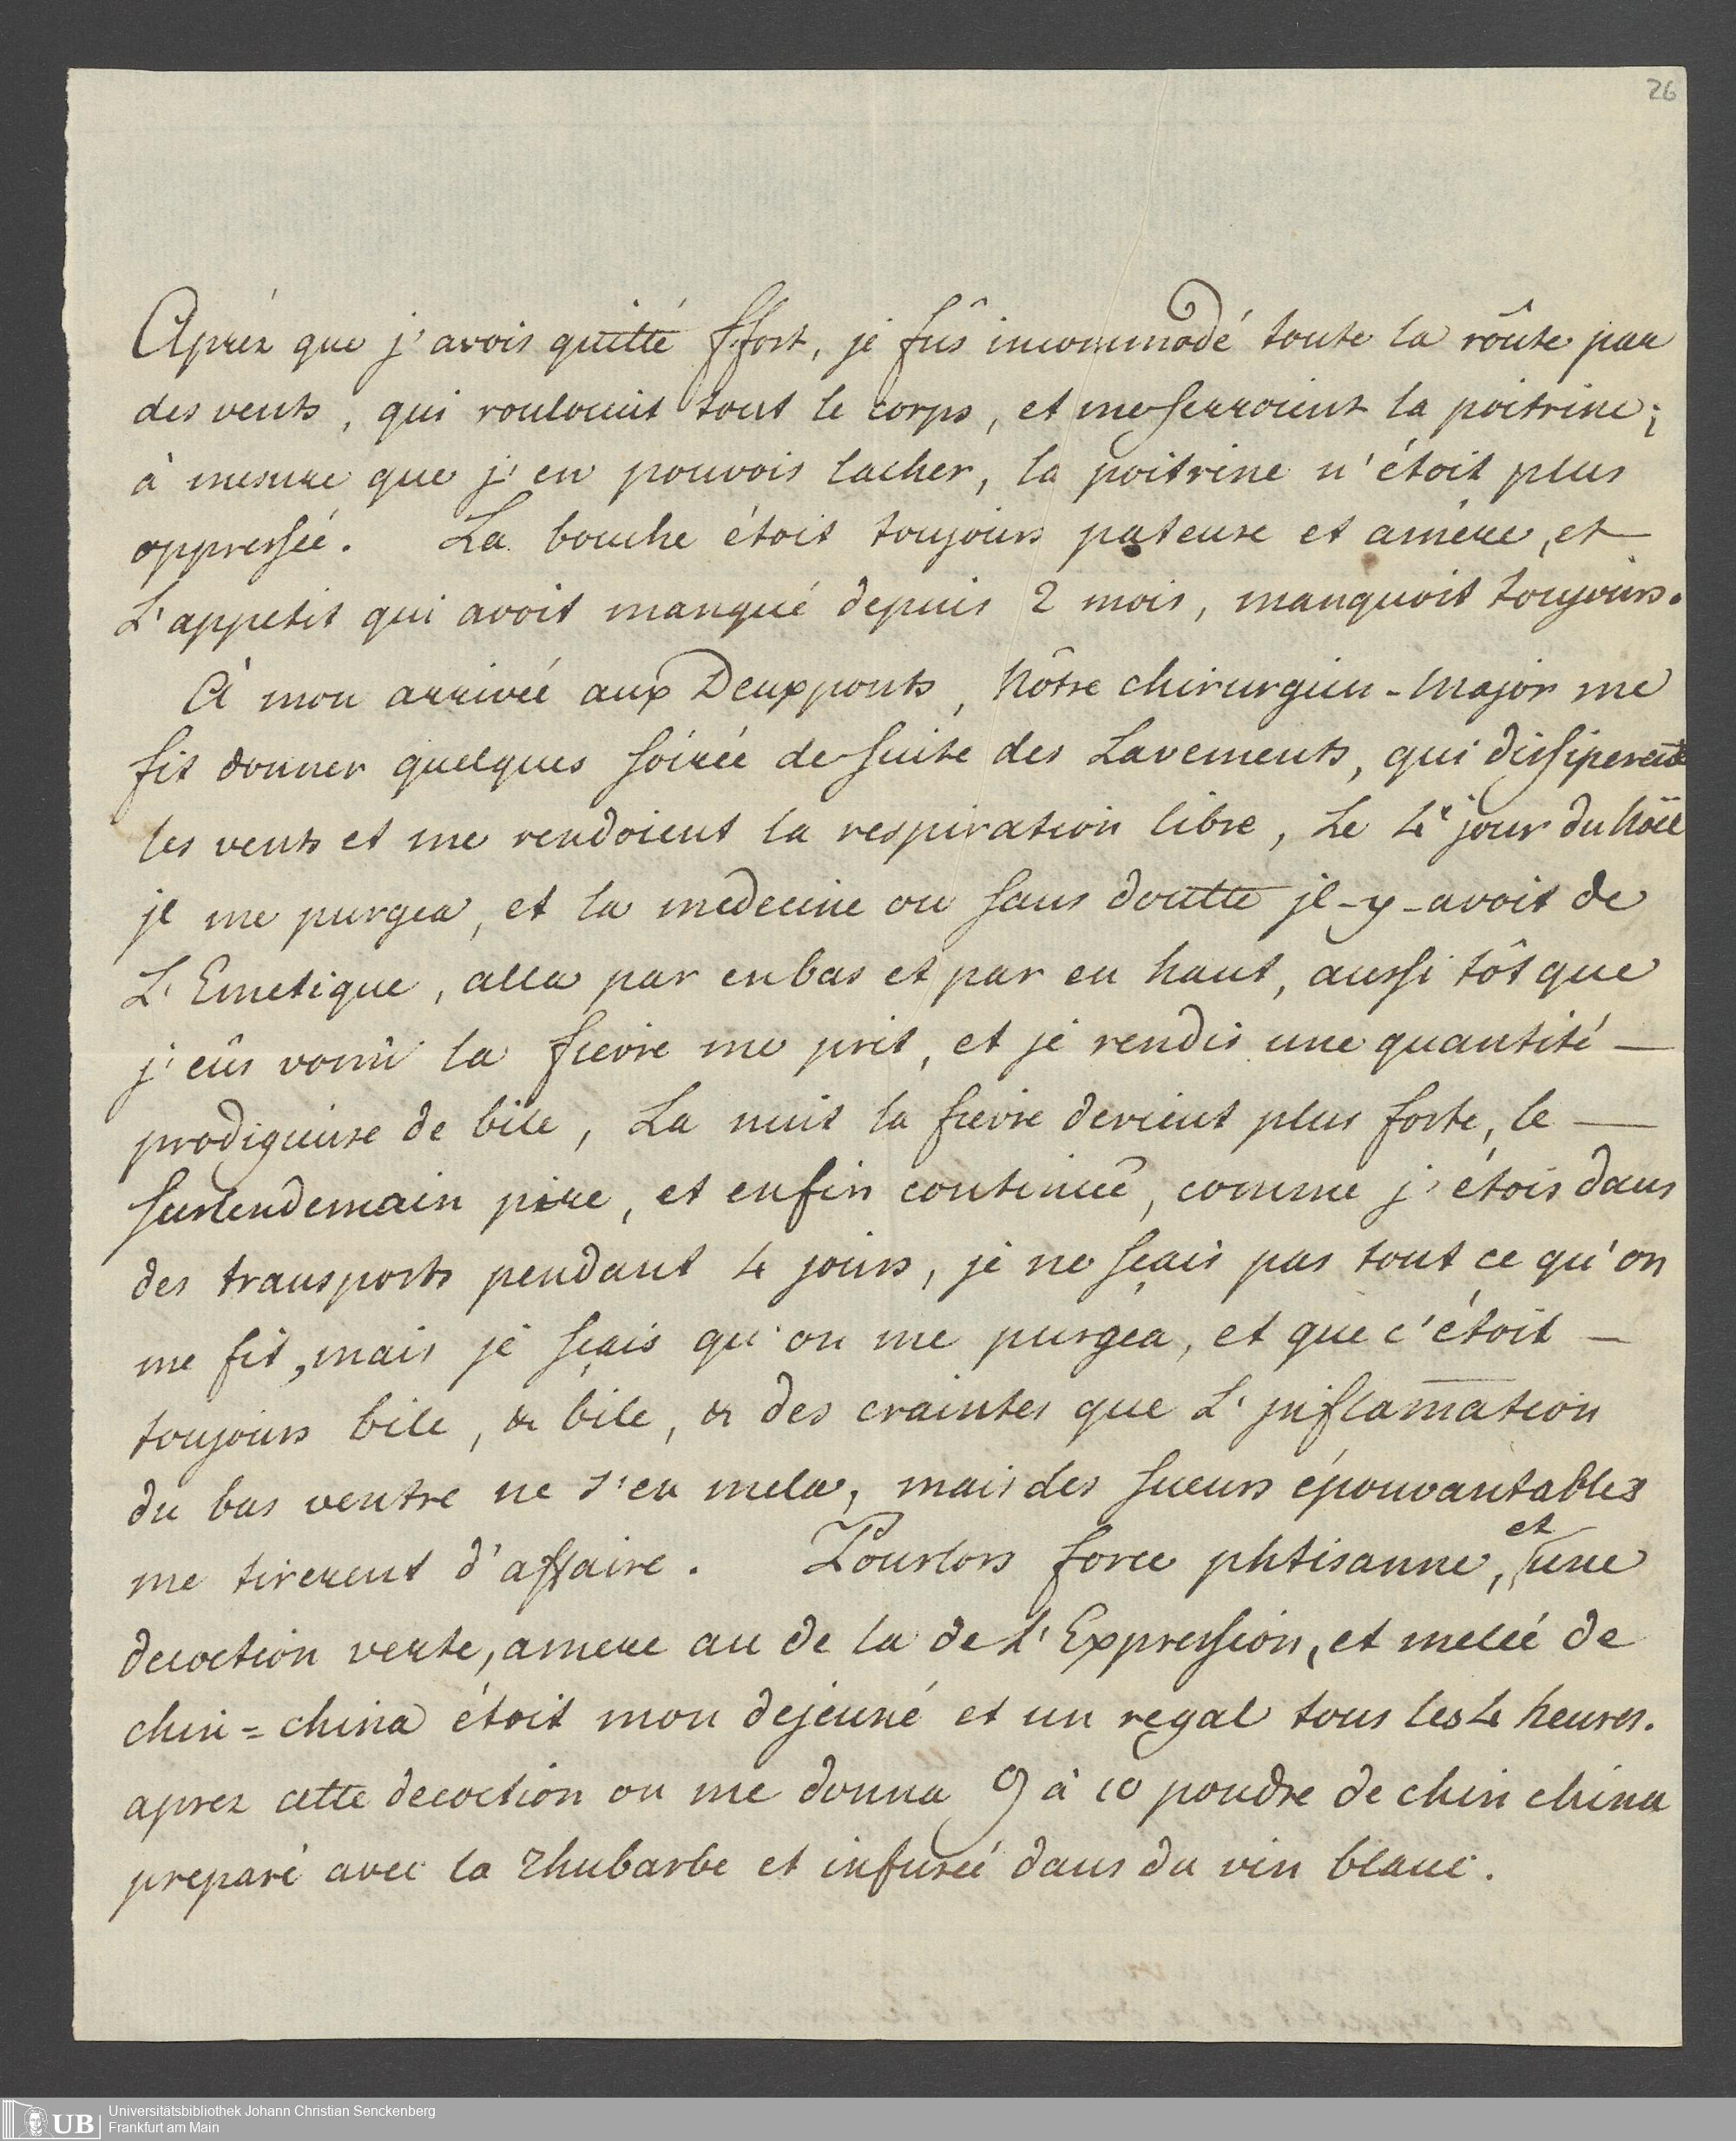 26
Apréz que j'avois quitté ffort, je fûs incommodé toute la rôute par
des vents, qui rouloient tout le corps, et me serroient la poitrine;
à mesure que j'en pouvois lacher, la poitrine n'étoit plus
oppressée. La bouche étoit toujours pateuse et amére, et
L'appetit qui avoit manqué depuis 2 mois, manquoit toujours.
À mon arrivée aux Deuxponts, Nôtre chirurgien-Major me
fit donner quelques soirée de suite des Lavements, qui dissiperent
les vents et me rendoient la respiration libre, Le 4e jour du Noël
je me purgea, et la medecine ou sans doutte jl-y-avoit de
L'Emetique, alla par enbas et par en haut, aussi tôt que
j'eûs vomi la fievre me prit, et je rendis une quantité —
prodigieuse de bile, La nuit la fievre devient plus forte, le —
surlendemain pire, et enfin continuë, comme j'étois dans
des transports pendant 4 jours, je ne sçais pas tout ce qu'on
me fit, mais je sçais qu'on me purgea, et que c'étoit —
toujours bile, & bile, & des craintes que L'jnflam̅ation
du bas ventre ne s'en mela, mais des sueurs épouvantables
me tirerent d'affaire. Pourlors force phtisanne, et une
decoction verte, amere au de la de L'Expression, et melée de
chin=china étoit mon dejeuné et un regal tous les 4 heures.
aprez cette decoction on me donna 9 à 10 poudre de chin china
preparé avec la rhubarbe et infusée dans du vin blanc.
UB
Universitätsbibliothek Johann Christian Senckenberg
Frankfurt am Main